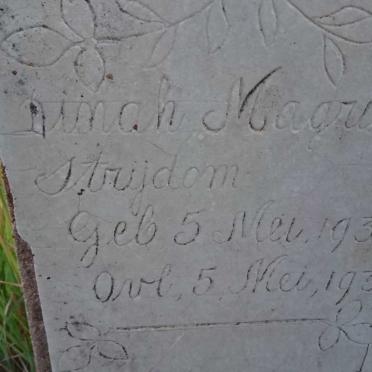 Dinah Magri
Strydom
Geb 5 Mei, 193
Ovl, 5, Mei, 193